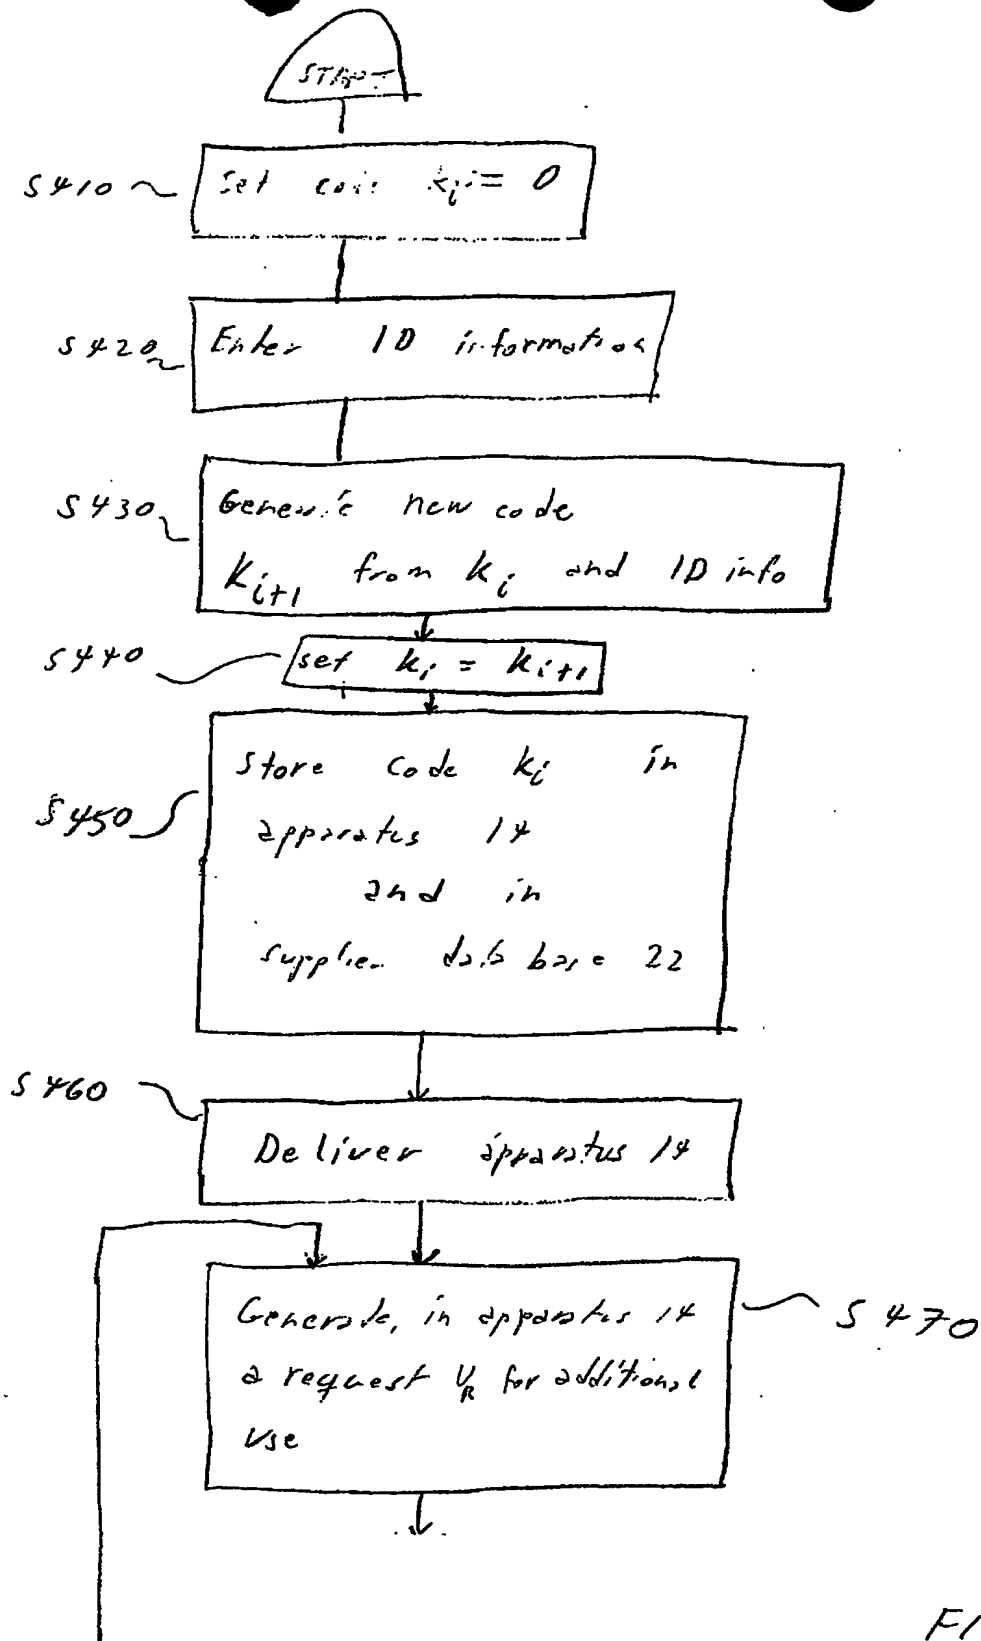 START
S410
Set code kᵢ = 0
S420
Enter ID information
S430
Generate new code
Kᵢ₊₁ from kᵢ and ID info
S440
set kᵢ = kᵢ₊₁
S450
Store code kᵢ in
apparatus 14
and in
supplier data base 22
S460
Deliver apparatus 14
S470
Generate, in apparatus 14
a request U_R for additional
use